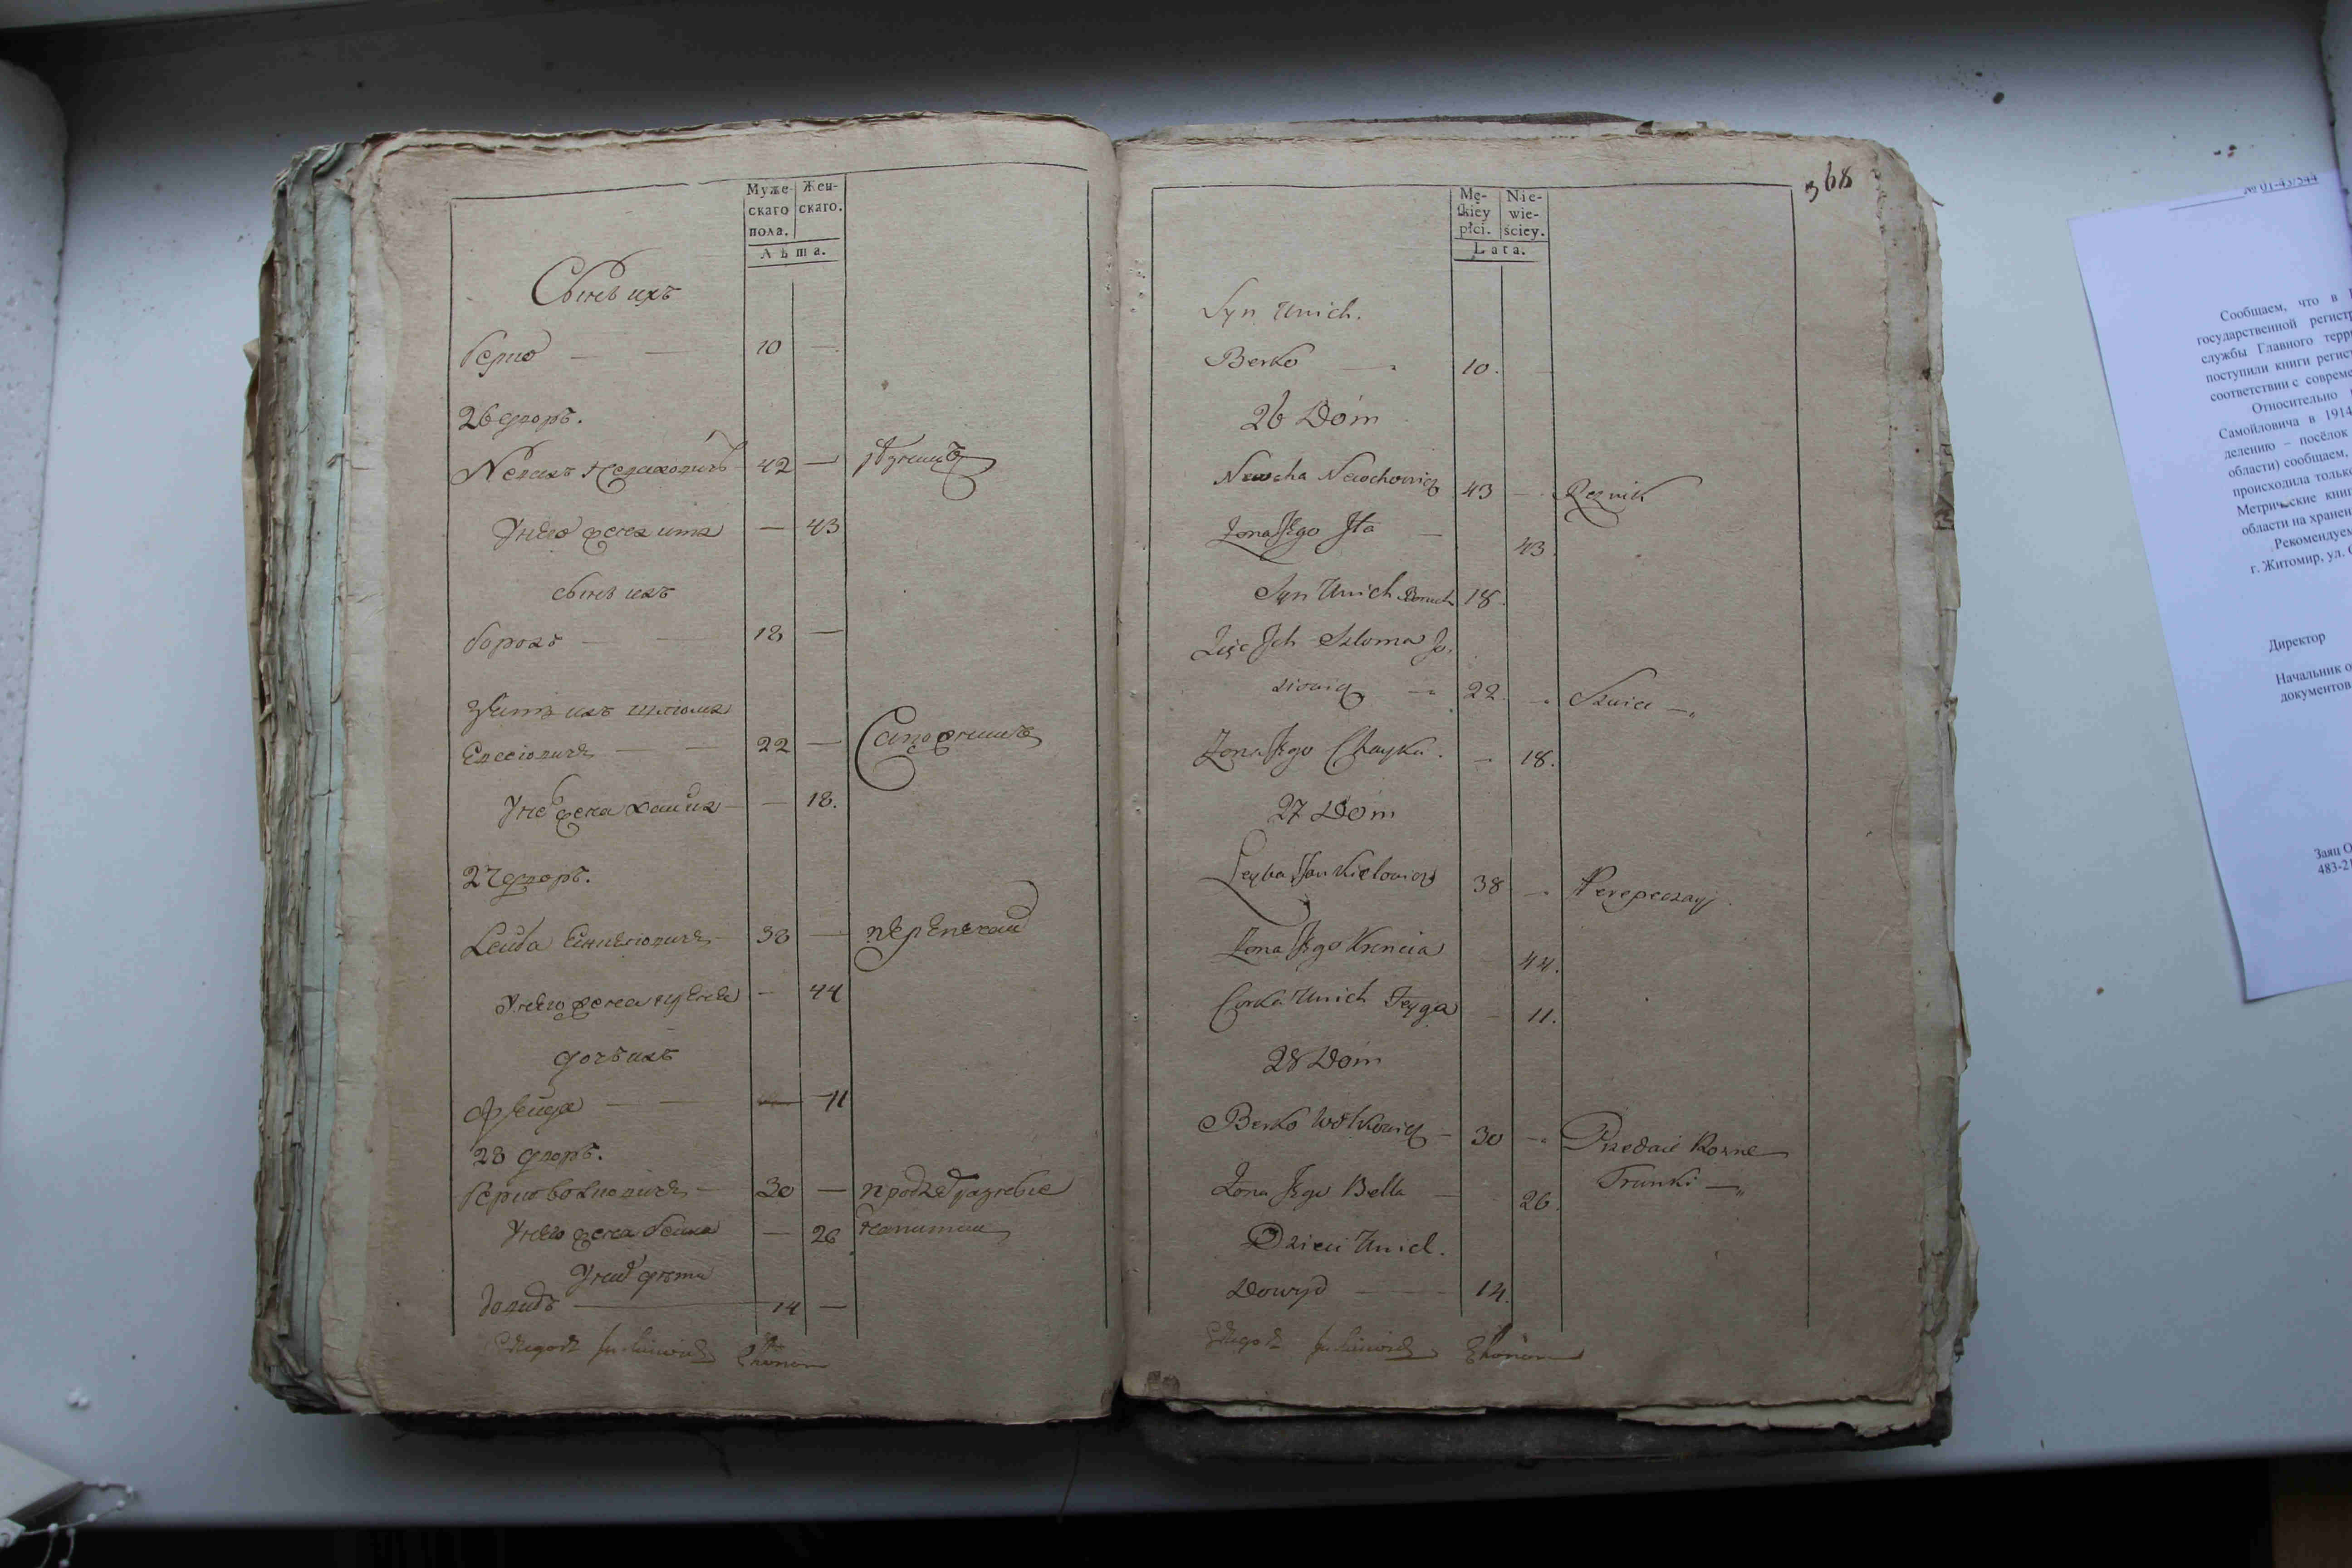 Муже- Жен-
скаго скаго.
пола.
Лѣта.
Сынъ ихъ
Берко — — 10 —
26 дворъ.
Невахъ Неваховичъ 42 — рѣзникъ
У него жена ита — 43
сынъ ихъ
борохъ — — 18 —
зять ихъ шлиома
Еосиовичъ — — 22 — Сапожникъ
У не жена хайка — — 18.
27 дворъ.
Лейба Еинкелиовичъ — 38 — перепечай
У него жена — 44
дочь ихъ
фейга — — — 11
28 дворъ.
Берко волковичъ — 30 — продаетъ разные
У него жена бейла — 26 напитки
У них дѣти
давидъ — 14 —
Ekonom
368
Mę- Nie-
skiey wie-
płci. ściey.
Lata.
Syn Unich.
Berko — 10.
26 Dom
Newcha Newchowicz 43 — Reznik
Zona Jego Ita — 43.
Syn Unich Boruch 18.
Zięc Jch Szloma Jo,
ziowicz — 22. Szwiec —
Zona Jego Chayka. — 18.
27 Dom
Leyba Jankielowicz 38 — Perepeczay.
Zona Jego Krencia 44.
Corka Unich Feyga — 11.
28 Dom
Berko Wolkowicz — 30 — Przedaie Rozne
Zona Jego Bella — 26. Trunki —
Dzieci Unich.
Dowyd — 14.
Ekonom
№ 01-43/544
Сообщаем, что в
государственной регистр
службы Главного терр
поступили книги регист
соответствии с совреме
Относительно
Самойловича в 1914
делению – посёлок
области) сообщаем,
происходила только
Метрические книг
области на хранен
Рекомендуем
г. Житомир, ул.
Директор
Начальник о
документов
Заяц О
483-2